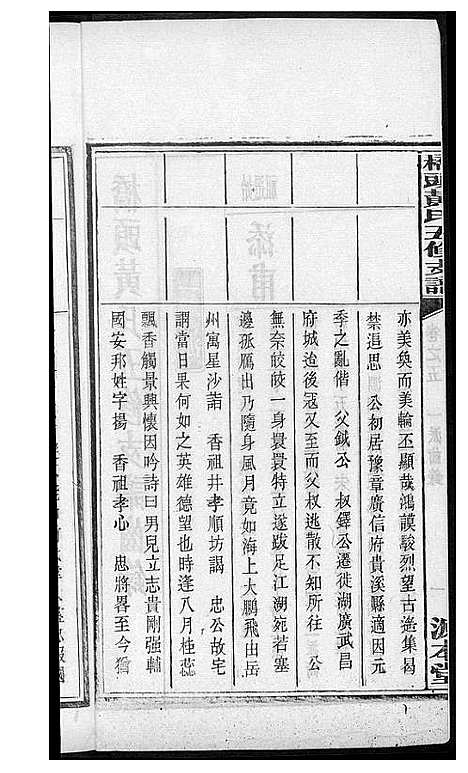 橋頭黃氏五修支譜
源本堂
亦美奐而美輪丕顯哉鴻謨駿烈望古遙集曷
禁追思 公初居豫章廣信府貴溪縣適因元
季之亂偕 父鉞公 叔鐸公遷徙湖廣武昌
府城迨後冦又至而父叔逃散不知所往 公
無奈皎皎一身睘睘特立遂跋足江湖宛若塞
邊孤鴈出乃隨身風月竟如海上大鵬飛由岳
州寓星沙詣 香祖井孝順坊謁 忠公故宅
謂當日果何如之英雄德望也時逢八月桂蕊
飄香觸景興懷因吟詩曰男兒立志貴剛强輔
國安邦姓字揚 香祖孝心 忠將畧至今猶